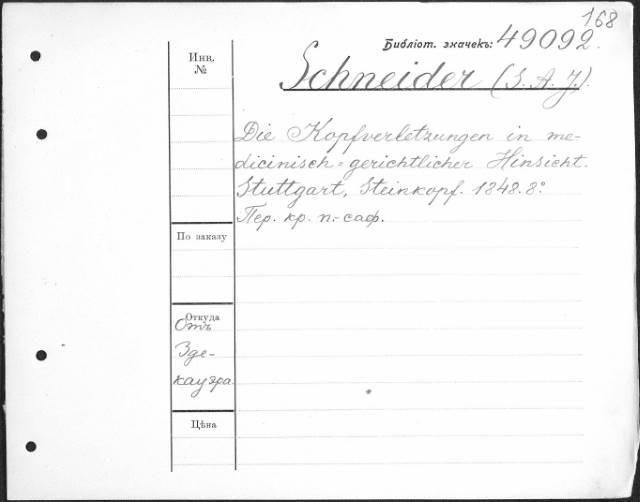 168
Библіот. значекъ: 49092.
Инв.
№
Schneider (S. A. J.).
Die Kopfverletzungen in me-
dicinisch-gerichtlicher Hinsicht.
Stuttgart, Steinkopf. 1848. 8º.
Пер. кр. п.-саф.
По заказу
Откуда
Отъ
Зде-
кауэра
Цѣна